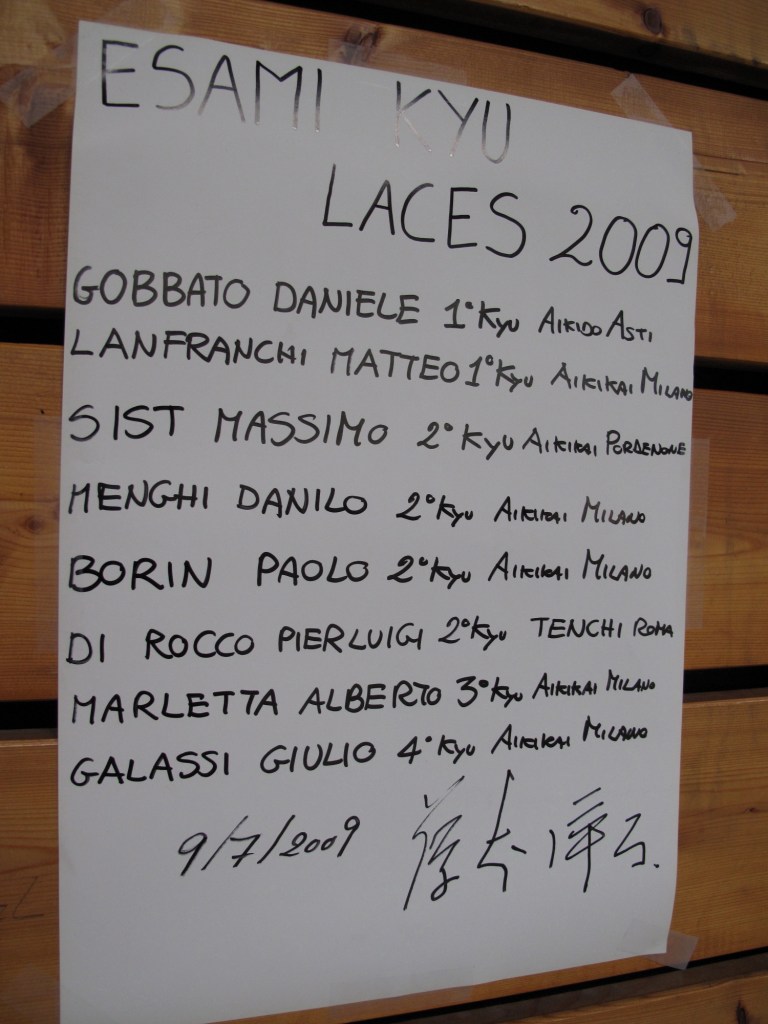 ESAMI KYU
LACES 2009
GOBBATO DANIELE 1° KYU AIKIDO ASTI
LANFRANCHI MATTEO 1° KYU AIKIKAI MILANO
SIST MASSIMO 2° KYU AIKIKAI PORDENONE
MENGHI DANILO 2° KYU AIKIKAI MILANO
BORIN PAOLO 2° KYU AIKIKAI MILANO
DI ROCCO PIERLUIGI 2° KYU TENCHI ROMA
MARLETTA ALBERTO 3° KYU AIKIKAI MILANO
GALASSI GIULIO 4° KYU AIKIKAI MILANO
9/7/2009